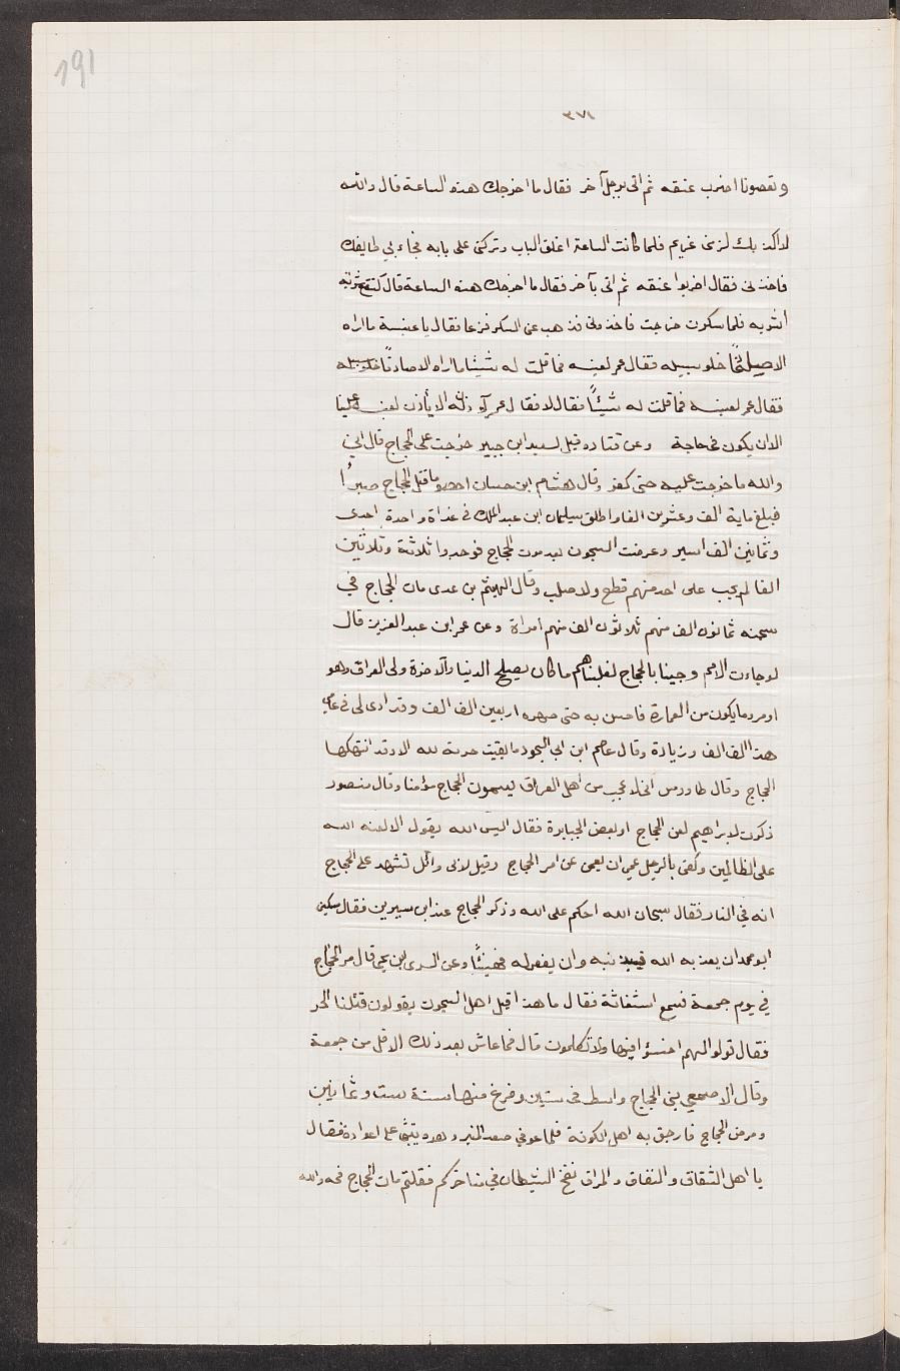 191
٣٧١
وتعصونا اضرب عنقه ثم اتى برجل آخر فقال ما اخرجك هذه الساعة قال والله
لا اكذبك لزمني غريم فلما كانت الساعة اغلق الباب وتركني على بابه فجاءني طايفك
فاخذني فقال اضربوا عنقه ثم اتى بآخر فقال ما اخرجك هذه الساعة قال كنت مع شربة
اشربه فلما سكرت خرجت فاخذوني فذهب عني السكر فزعا فقال يا عنبسة ما اراه
الا صادقا خلو سبيله فقال عمر لعنبسه فما قلت له شيئا ما اراه الا صادقا خلو سبيله
فقال عمر لعنبسه فما قلت له شيئاً فقال لا فقال عمر لاذنه الا يأذن لعنبسه علينا
الا ان يكون في حاجة وعن قتاده قيل لسعيد ابن جبير خرجت على الحجاج قال اني
والله ما خرجت عليه حتى كفر وقال هشام ابن حسان احصوا ما قتل الحجاج صبرًا
فبلغ ماية الف وعشرين الفا واطلق سيلمان ابن عبد الملك في غداة واحدة احدى
وثمانين الف اسير وعرضت السجون بعد موت الحجاج فوجدوا ثلاثة وثلاثين
الفا لم يجب على احد منهم قطع ولا صلب وقال الهيثم بن عدى مات الحجاج في
سجنه ثمانون الف منهم ثلاثون الف منهم امراة وعن عمر ابن عبد العزيز قال
لو جاءت الامم وجينا بالحجاج لغلبناهم ما كان يصلح الدنيا ولا لآخرة ولى العراق وهو
اوفر ما يكون من العمارة فاخس به حتى صيره اربعين الف الف وقد ادى لى في عامي
هذا الف الف وزيادة وقال عاصم ابن ابي النجود ما بقيت حرمة لله الا وقد انتهكها
الحجاج وقال طاورس اني لاعجب من اهل العراق يسمون الحجاج مؤمنا وقال منصور
ذكرت لابراهيم لعن الحجاج او لبعض الجبابرة فقال اليس الله يقول الا لعنه الله
على الظالمين وكفى بالرجل عمى ان يعمى عن امر الحجاج وقيل لابى وائل تشهد على الحجاج
انه في النار فقال سبحان الله احكم على الله وذكر الحجاج عند ابن سيرين فقال مسكين
ابو محمد ان يعذبه الله فبذنبه وان يغفر له فهنيئًا وعن السرى ابن يحي قال مر الحجاج
في يوم جمعة فسمع استغاثة فقال ما هذا قيل اهل السجون يقولون قتلنا الحر
فقال قولوا لهم اخسؤا فيها ولا تكلمون قال فما عاش بعد ذلك الا اقل من جمعة
وقال الاصمعي بنى الحجاج واسط في سنتين وفرغ منها سنة ست وثمانين
ومرض الحجاج فارجق به اهل الكوفة فلما عوفي صعد المنبر وهو يتثنى على اعواده فقال
يا اهل الشقاق والنفاق والمراق نفخ الشيطان في مناخركم فقلتم مات الحجاج فمه والله